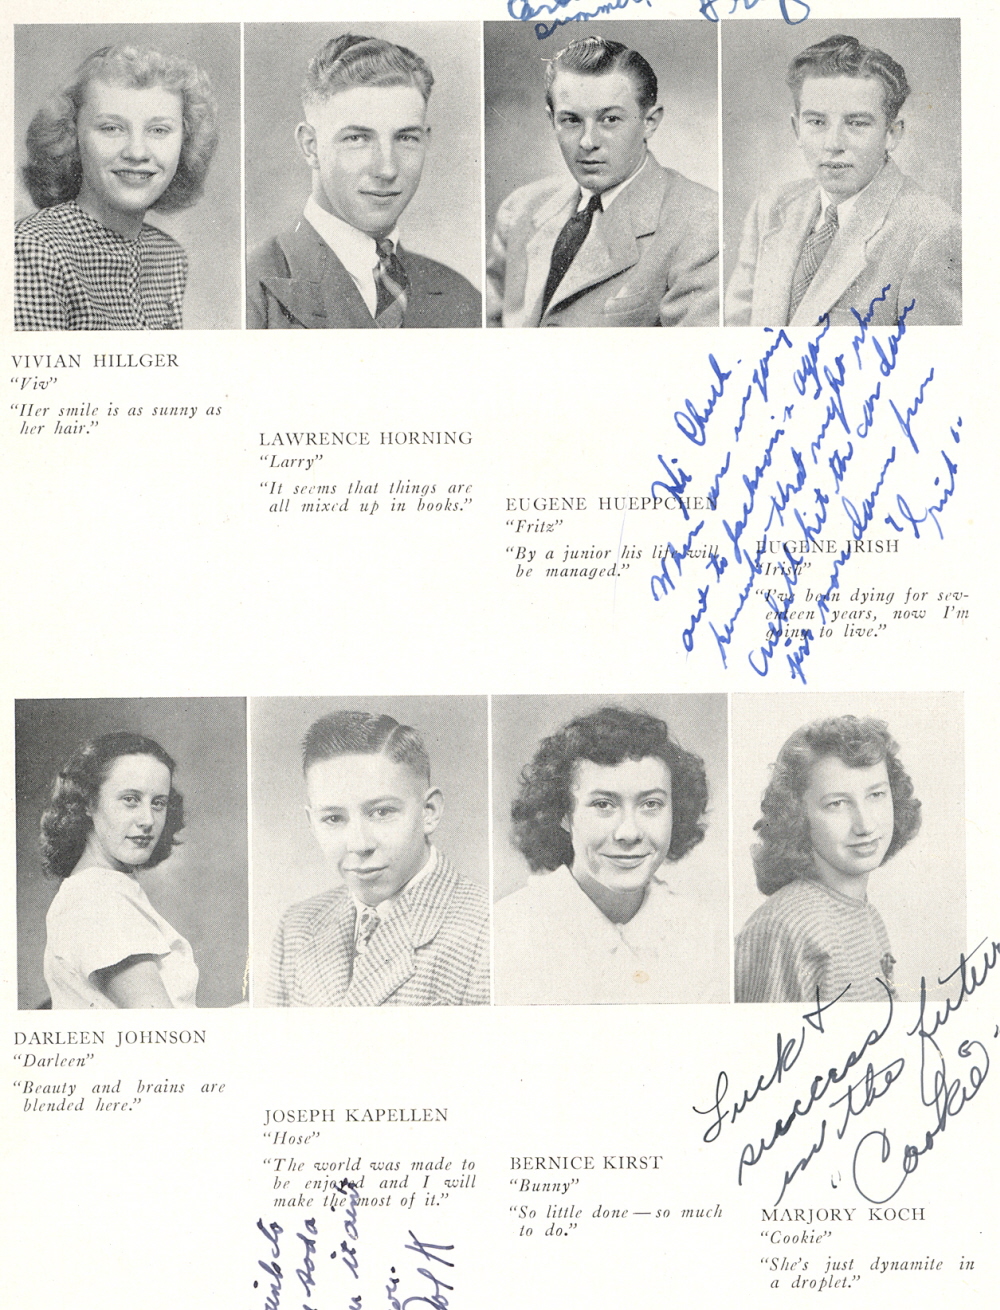 summer,
VIVIAN HILLGER
"Viv"
"Her smile is as sunny as
her hair."
LAWRENCE HORNING
"Larry"
"It seems that things are
all mixed up in books."
EUGENE HUEPPCHEN
"Fritz"
"By a junior his life will
be managed."
Hi Chuck.
When are we going
out to Jackson's again
remember that night when
hit the car door
more damn fun
"Irish"
EUGENE IRISH
"Irish"
"I've been dying for sev-
enteen years, now I'm
going to live."
DARLEEN JOHNSON
"Darleen"
"Beauty and brains are
blended here."
JOSEPH KAPELLEN
"Hose"
"The world was made to
be enjoyed and I will
make the most of it."
soda
it ain't
BERNICE KIRST
"Bunny"
"So little done—so much
to do."
Luck &
success
in the future
"Cookie"
MARJORY KOCH
"Cookie"
"She's just dynamite in
a droplet."